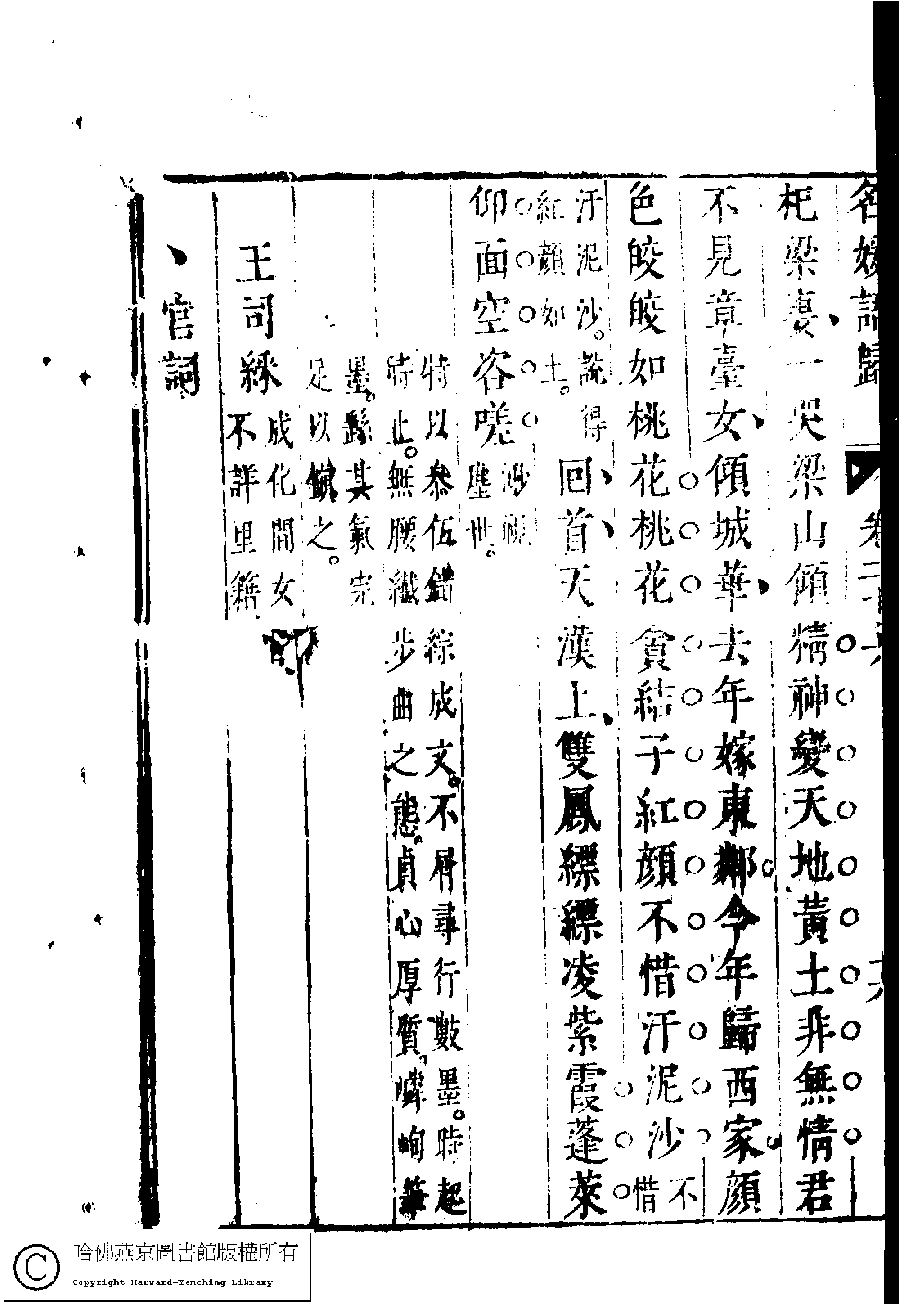 名媛詩歸 卷二十六
杞梁妻一哭梁山傾精神變天地黃土非無情君
不見章臺女傾城華去年嫁東鄰今年歸西家顏
色皎皎如桃花桃花貪結子紅顏不惜汙泥沙不惜
汙泥沙。說得紅顏如土。回首天漢上雙鳳縹縹凌紫霞蓬萊
仰面空咨嗟
塵世。
特以參伍錯綜成文。不屑尋行數墨。時起
時止。無腰纖步曲之態。貞心厚質。嶙峋筆
墨。繇其氣完
足以鎮之。
王司綵 成化間女
不詳里籍
宮詞
哈佛燕京圖書館版權所有
Copyright Harvard-Yenching Library